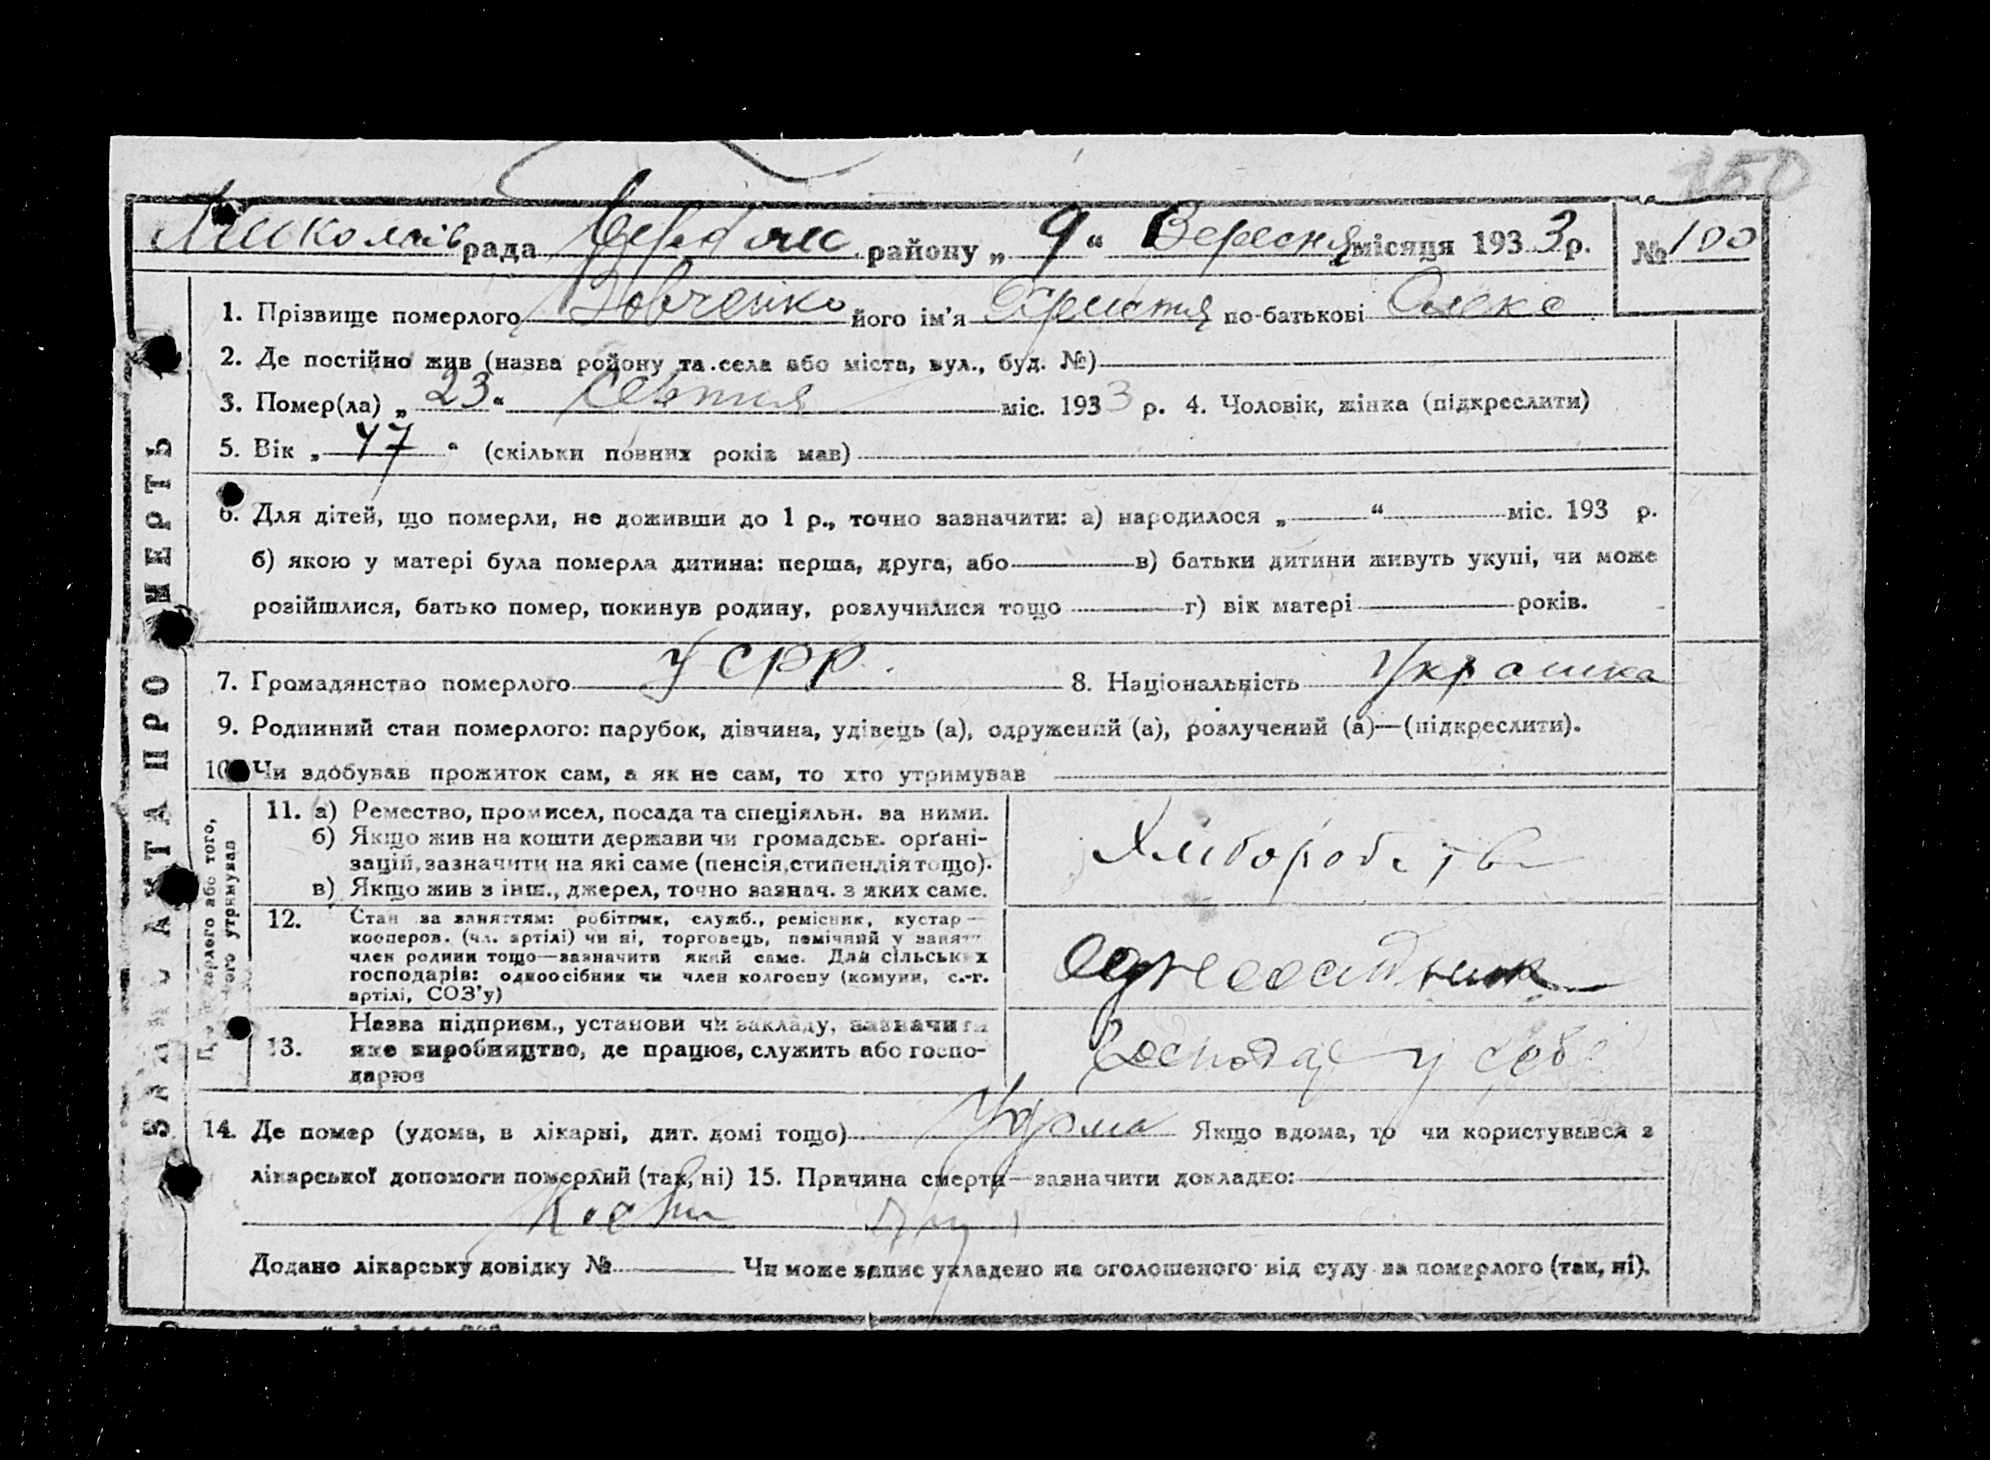 150
Миколаїв рада району „ 9 “ Вересня місяця 1933 р. № 100
1. Прізвище померлого Вовченко його ім'я Христя по-батькові Олекс
2. Де постійно жив (назва району та села або міста, вул., буд. №)
3. Помер(ла) „ 23 “ міс. 1933 р. 4. Чоловік, жінка (підкреслити)
5. Вік „ 47 “ (скільки повних років мав)
6. Для дітей, що померли, не доживши до 1 р., точно зазначити: а) народилося „ “ міс. 193 р.
б) якою у матері була померла дитина: перша, друга, або в) батьки дитини живуть укупі, чи може
розійшлися, батько помер, покинув родину, розлучилися тощо г) вік матері років.
7. Громадянство померлого УСРР. 8. Національність Украинка
9. Родинний стан померлого: парубок, дівчина, удівець (а), одружений (а), розлучений (а)—(підкреслити).
10. Чи здобував прожиток сам, а як не сам, то хто утримував
11. а) Ремество, промисел, посада та спеціяльн. за ними.
б) Якщо жив на кошти держави чи громадськ. орґані-
зацій, зазначити на які саме (пенсія, стипендія тощо).
в) Якщо жив з інш., джерел, точно зазнач. з яких саме.
Хліборобств
12. Стан за заняттям: робітник, служб., ремісник, кустар—
кооперов. (чл. артілі) чи ні, торговець, помічний у занятт
член родини тощо—зазначити який саме. Для сільських
господарів: одноосібник чи член колгоспу (комуни, с.-г.
артілі, СОЗ'у)
Одноосибник
13. Назва підприєм., установи чи закладу, зазначити
яке виробництво, де працює, служить або госпо-
дарює
Господар у себе
14. Де помер (удома, в лікарні, дит. домі тощо) Удома Якщо вдома, то чи користувався з
лікарської допомоги померлий (так, ні) 15. Причина смерти—зазначити докладно:
Додано лікарську довідку № Чи може запис укладено на оголошеного від суду за померлого (так, ні).
ЗАПИС АКТА ПРО СМЕРТЬ